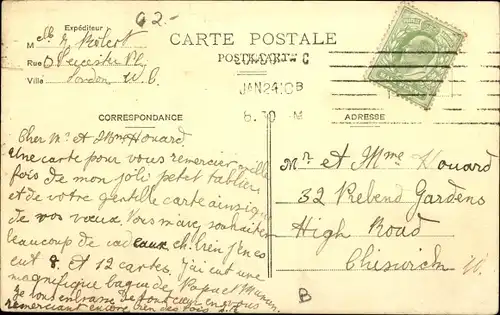 62-
Expéditeur
CARTE POSTALE
M
Rue Leicester Pl.
POSTCARD
Ville London W.C.
JAN 24 08
6.30 M
CORRESPONDANCE
ADRESSE
Cher Mr et Mme Houard.
une carte pour vous remercier mille
fois de mon joli petit tablier
et de votre gentille carte ainsi que
de vos vœux. Vous m'avez souhaiter
beaucoup de cadeaux eh bien j'en es
eut 8 et 12 cartes. j'ai eut une
magnifique bague de Papa et Maman.
Je vous embrasse de tout cœur en vous
remerciant encore bien des fois
Mr et Mme Houard
32 Prebend Gardens
High Road
Chiswick W.